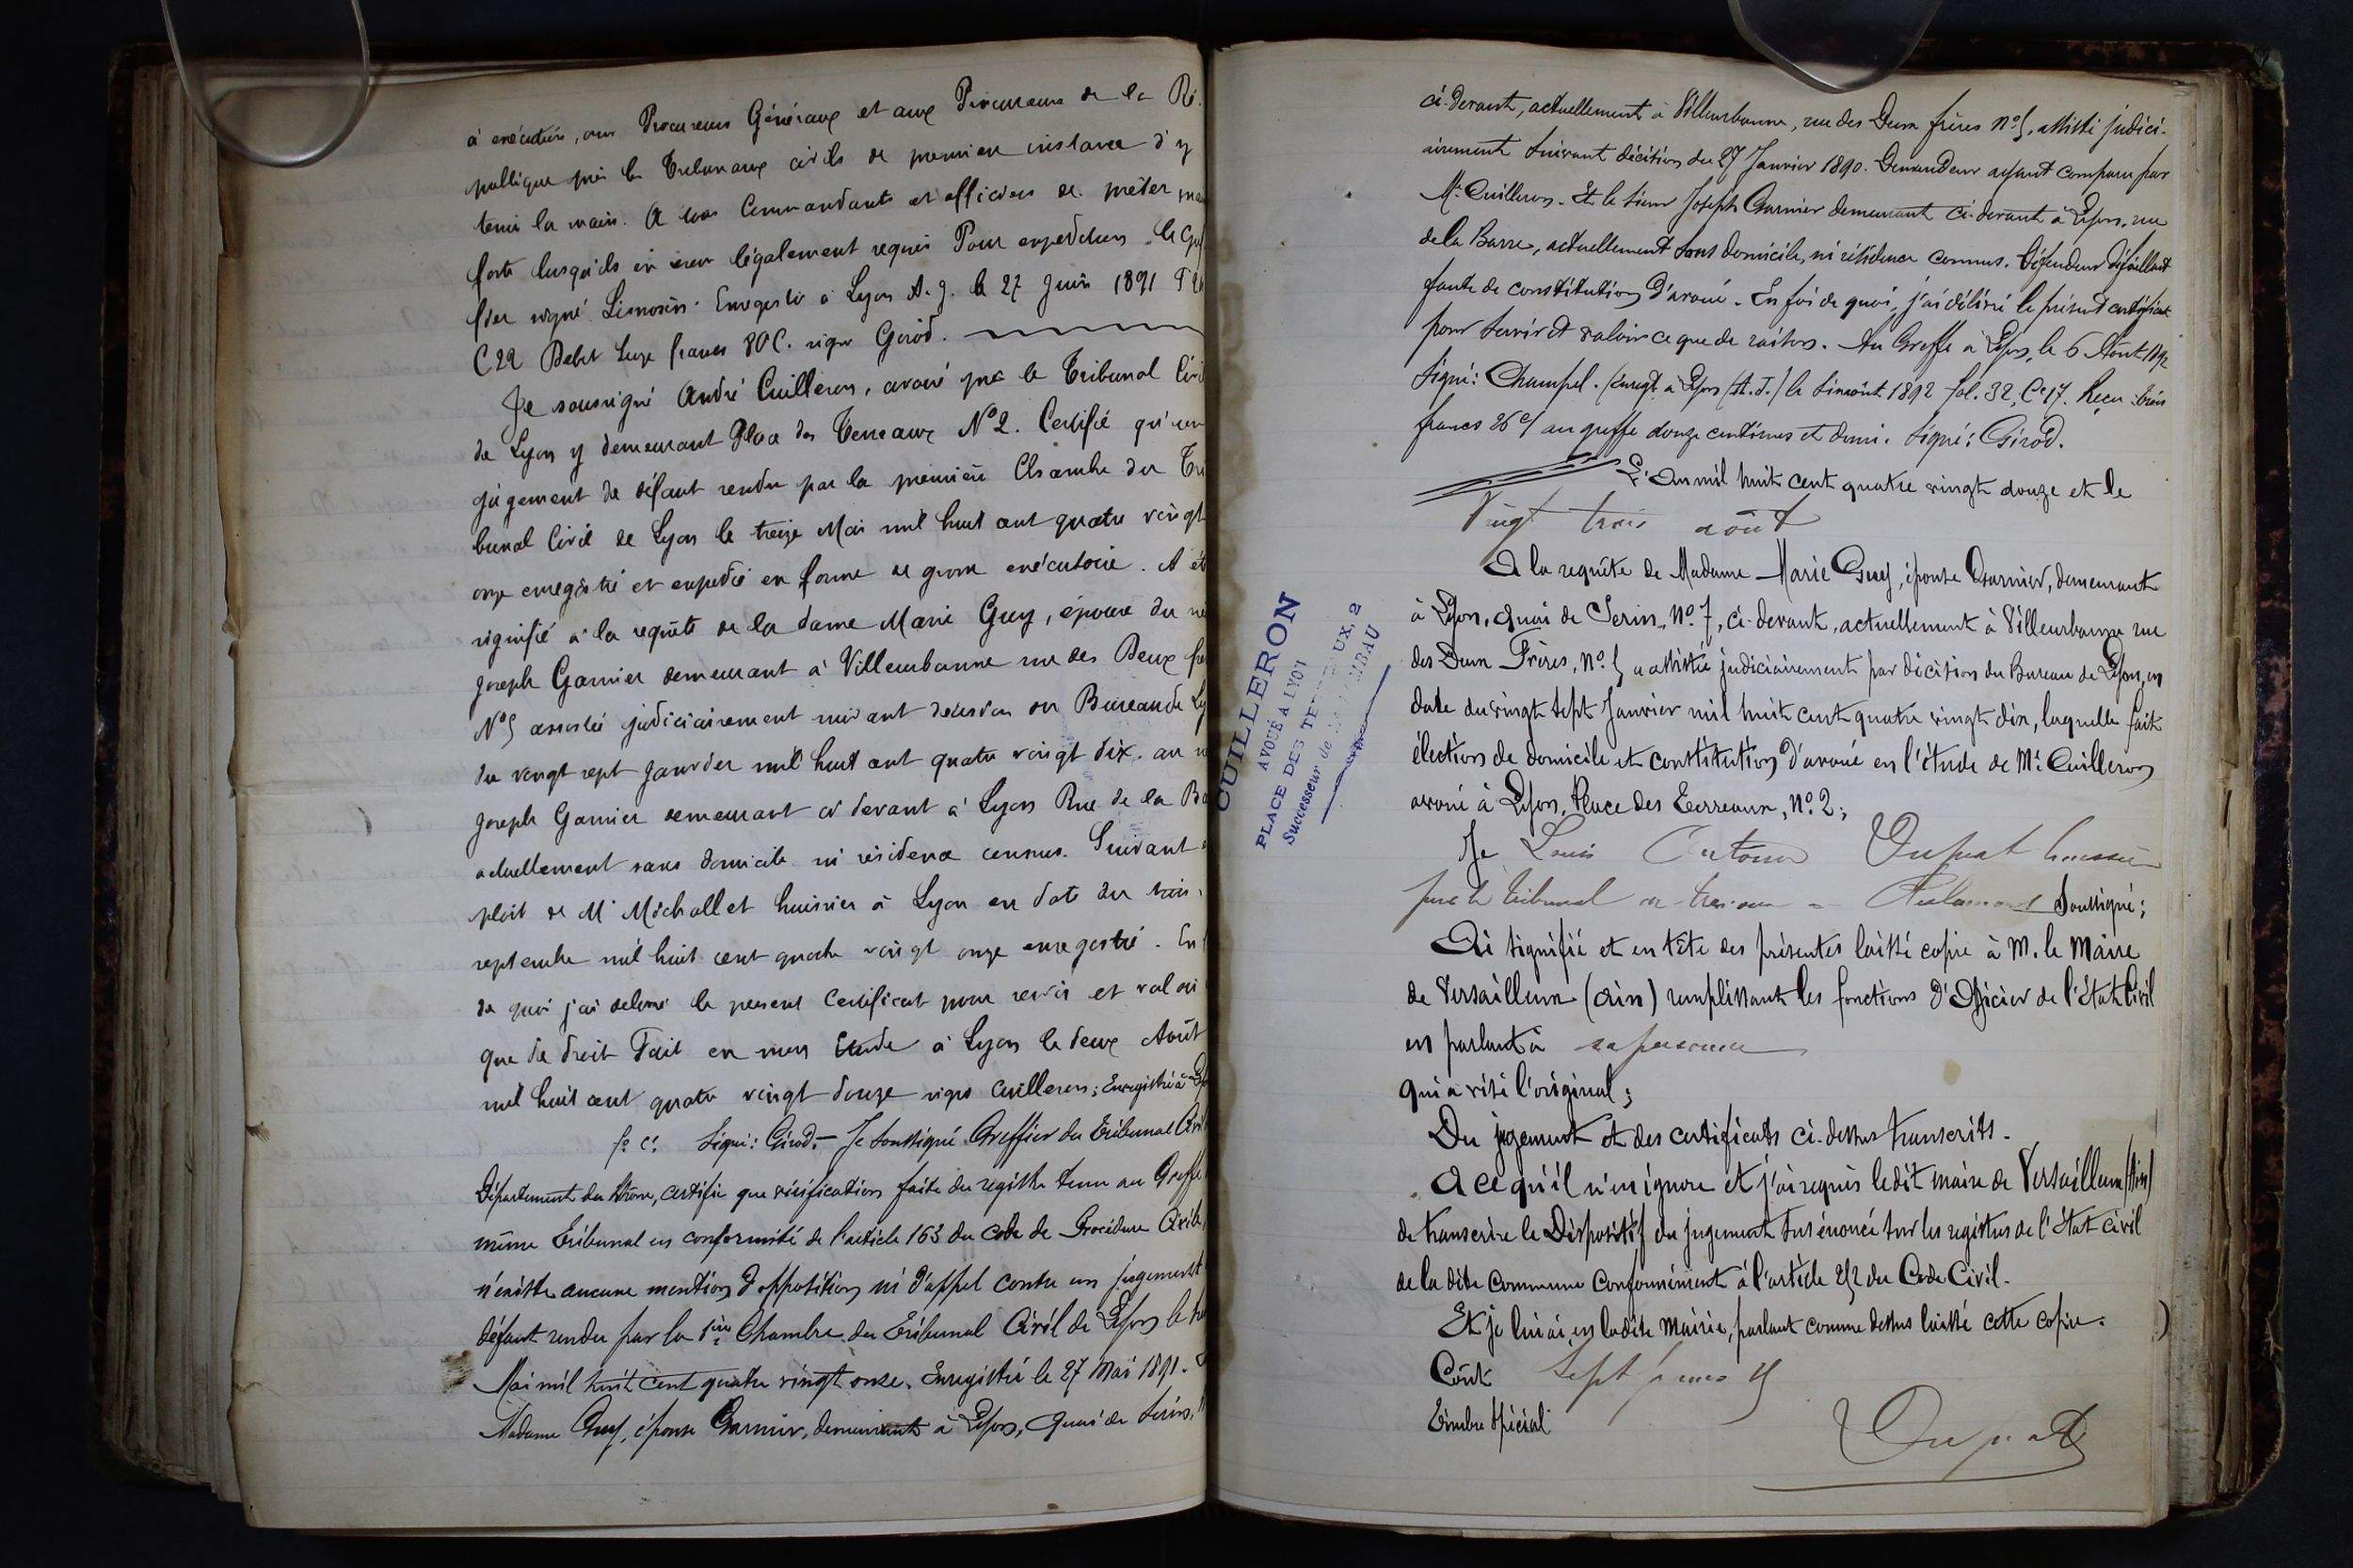 à exécution, aux Procureurs Généraux et aux Procureurs de la Ré
publique près les Tribunaux civils de première instance d'y
tenir la main. A tous Commandants et officiers de prêter
forte lorsqu'ils en seront légalement requis Pour expedition
signé Limosin. Enregistré à Lyon A. J. le 27 Juin 1891
C 22 Debet francs 80 C. signé Girod.
Je soussigné André Cuilleron, avoué près le Tribunal Civil
de Lyon y demeurant Place des Terreaux N° 2. Certifie qu'un
jugement de défaut rendu par la première Chambre du Tri
bunal Civil de Lyon le treize Mai mil huit cent quatre vingt
onze enregistré et expedié en forme de grosse exécutoire. A été
signifié à la requête de la dame Marie Guy, épouse du
Joseph Garnier demeurant à Villeurbanne rue des Deux
N° 5 assistée judiciairement suivant decision du Bureau de
du vingt sept Janvier mil huit cent quatre vingt dix. au
Joseph Garnier demeurant ci devant à Lyon Rue de la
actuellement sans domicile ni résidence connus. Suivant
ploit de Mr Michallet huissier à Lyon en date du
septembre mil huit cent quatre vingt onze enregistré. En
de quoi j'ai delivré le present Certificat pour servir et valoir
que de droit Fait en mon Etude à Lyon le deux Août
mil huit cent quatre vingt douze signé Cuilleron; Enregistré à
f° c° Signé: Girod. – Je soussigné Greffier du Tribunal
Département du Rhône, certifie que vérification faite du registre tenu au Greffe
même Tribunal en conformité de l'article 163 du Code de Procédure Civile,
n'existe aucune mention d'opposition ni d'appel contre un jugement
défaut rendu par la 1ère Chambre du Tribunal Civil de Lyon le
Mai mil huit cent quatre vingt onze. Enregistré le 27 Mai 1891.
Madame Guy, épouse Garnier, demeurant à Lyon, Quai de Serin,
CUILLERON
AVOUÉ A LYON
PLACE DES TERREAUX, 2
Successeur de
ci-devant, actuellement à Villeurbanne, rue des Deux frères N° 5, assisté judici-
airement suivant décision du 27 Janvier 1890. Demandeur ayant comparu par
Me Cuilleron. Et le sieur Joseph Garnier demeurant ci-devant à Lyon, rue
de la Barre, actuellement sans domicile, ni résidence connus. Défendeur défaillant
faute de constitution d'avoué. En foi de quoi, j'ai délivré le présent certificat
pour servir et valoir ce que de raison. Au Greffe à Lyon, le 6 Août 1892
Signé: Champel. / Enregt. à Lyon (A. J.) le six août 1892 fol. 32, Ce 17. Reçu
francs 26 c/ au greffe douze centimes et demi. Signé: Girod.
L'an mil huit cent quatre vingt douze et le
Vingt trois août
A la requête de Madame Marie Guy, épouse Garnier, demeurant
à Lyon, Quai de Serin, N° 7, ci-devant, actuellement à Villeurbanne rue
des Deux Frères, N° 5 assistée judiciairement par décision du Bureau de Lyon, en
date du vingt sept Janvier mil huit cent quatre vingt dix, laquelle fait
élection de domicile et constitution d'avoué en l'étude de Me Cuilleron
avoué à Lyon, Place des Terreaux, N° 2;
Je Louis Antoine Dupuat huissier
près le tribunal de Trévoux Chalamont soussigné;
Ai signifié et en tête des présentes laissé copie à M. le Maire
de Versailleux (Ain) remplissant les fonctions d'Officier de l'état Civil
en parlant à sa personne
qui a visé l'original;
Du jugement et des certificats ci-dessus transcrits.
A ce qu'il n'en ignore et j'ai requis le dit maire de Versailleux (Ain)
de transcrire le Dispositif du jugement sus énoncé sur les registres de l'état civil
de la dite commune conformément à l'article 252 du Code Civil.
Et je lui ai, en ladite Mairie, parlant comme dessus laissé cette copie.
Coût Sept francs
Timbre spécial